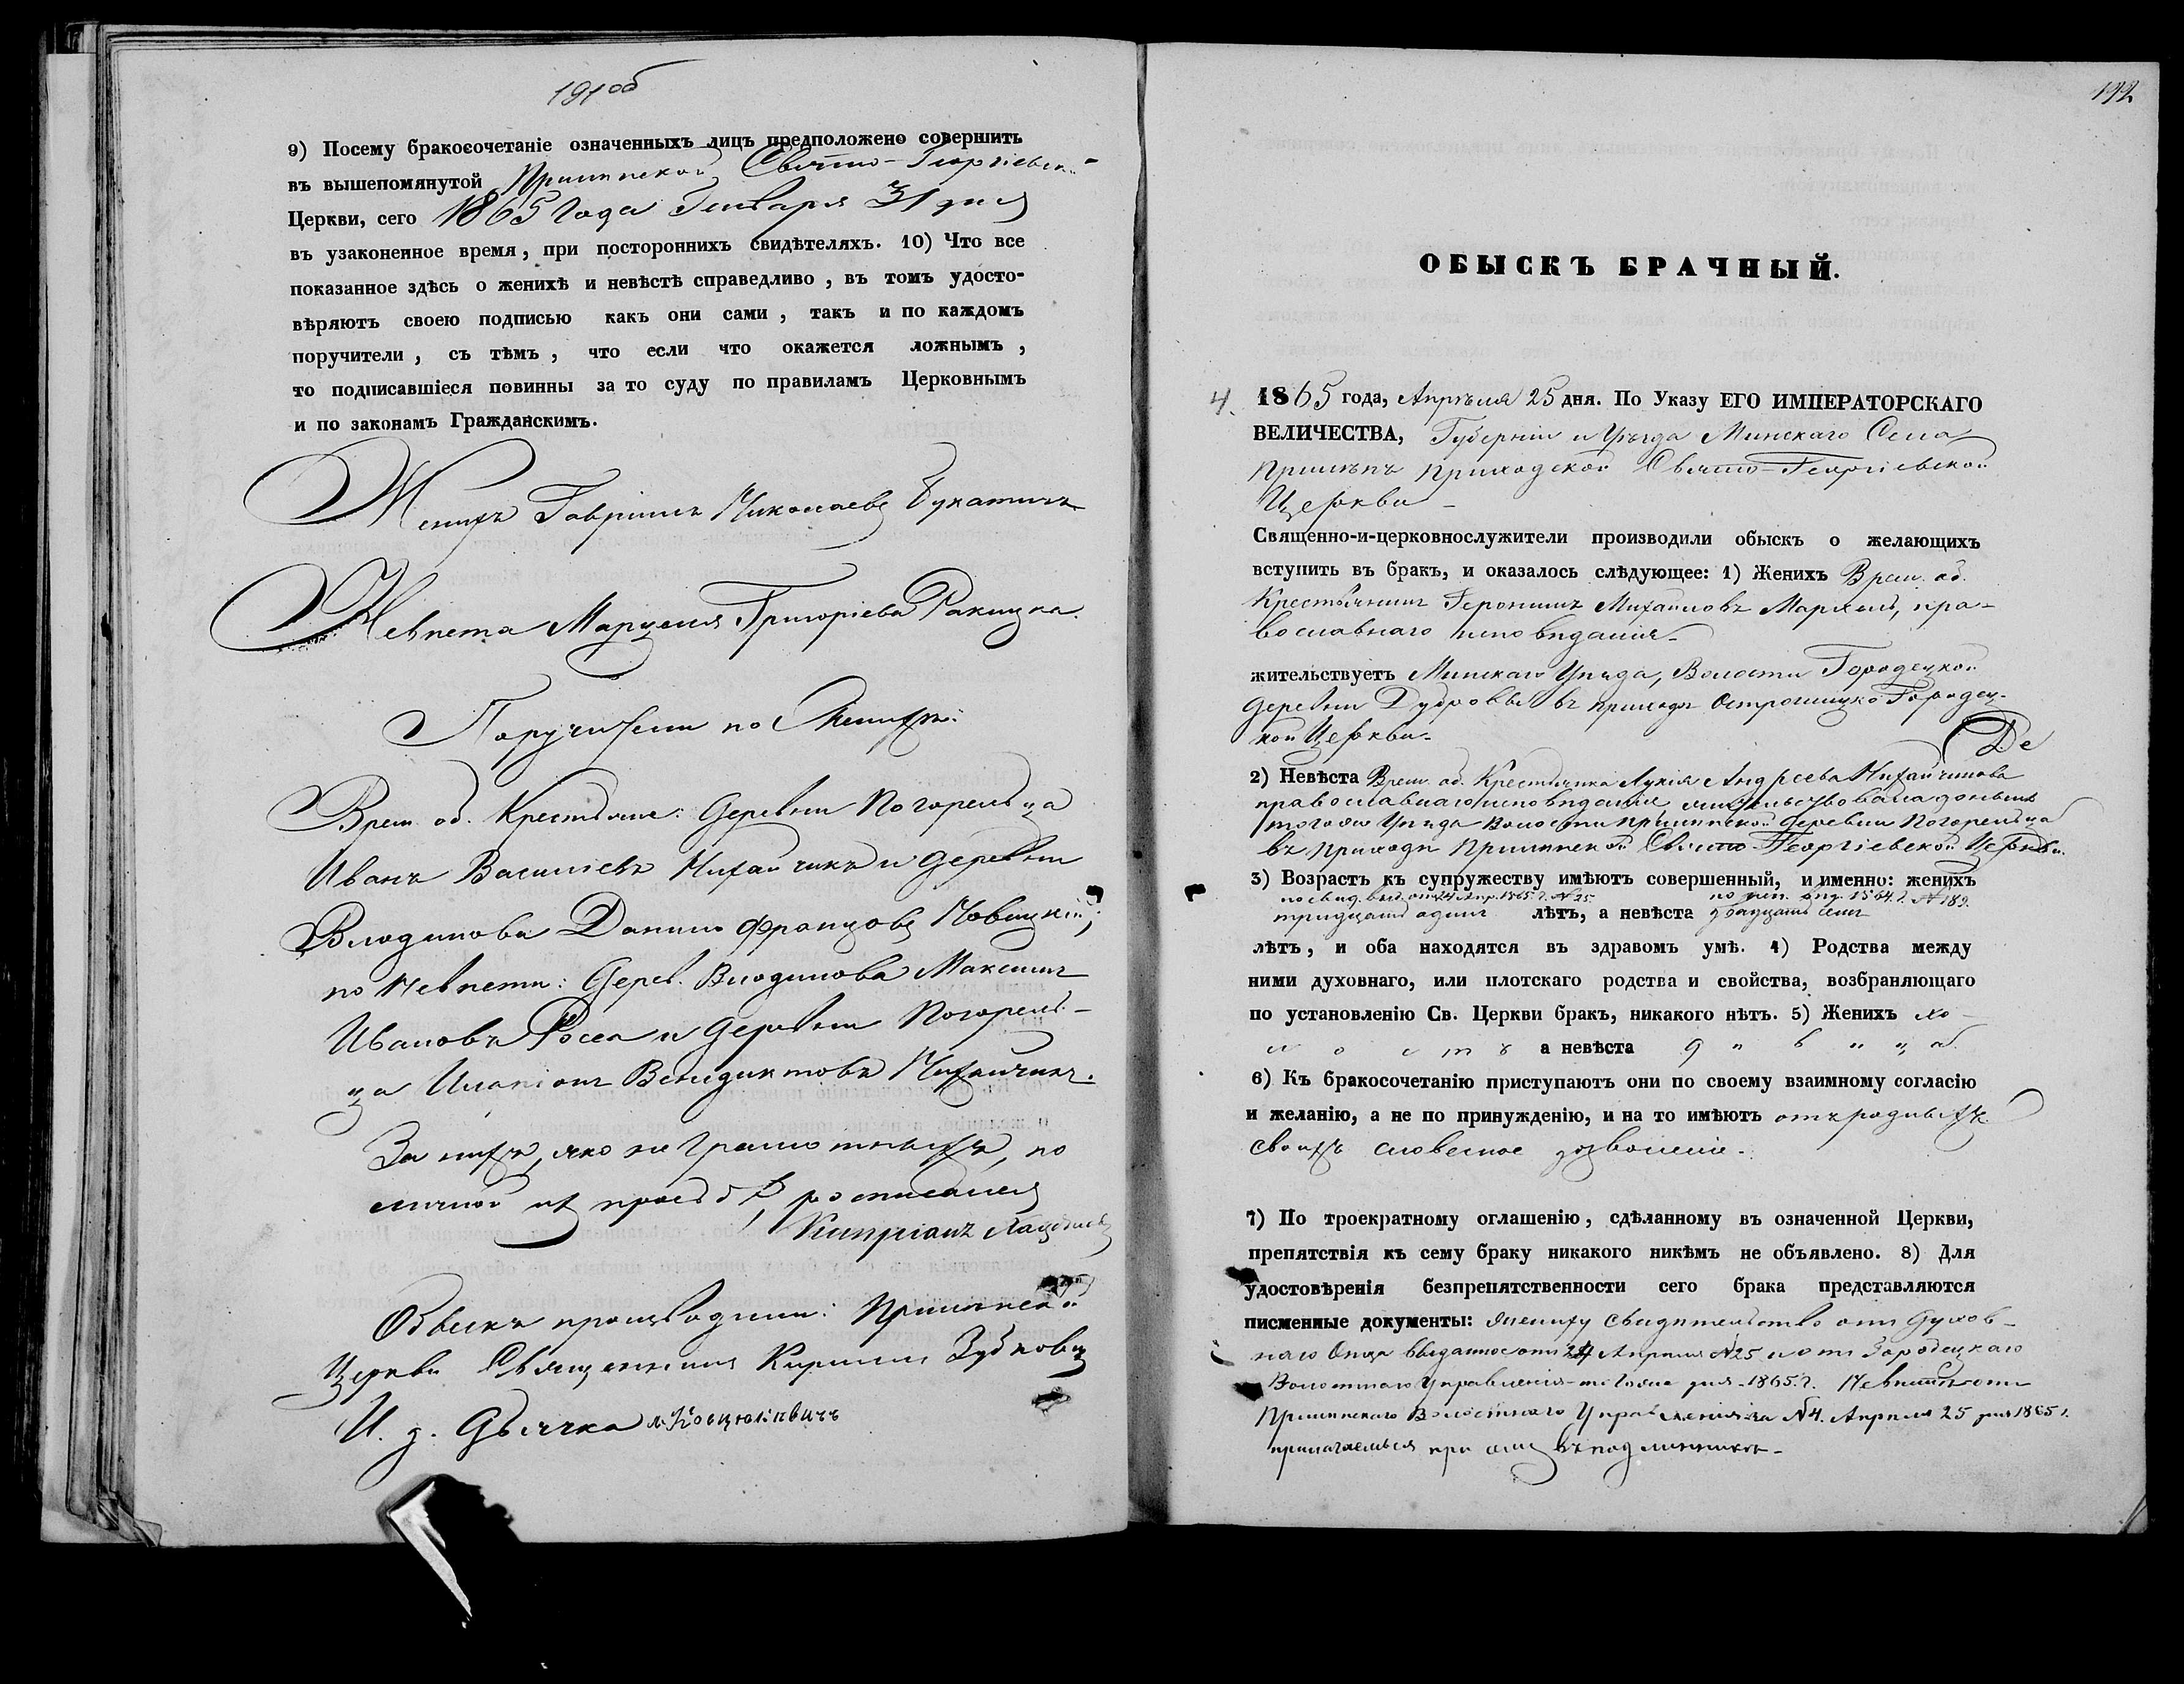 191об
9) Посему бракосочетаніе означенныхъ лицъ предположено совершить
въ вышепомянутой Прилѣпской Свято-Георгіевской
Церкви, сего 1865 года Генваря 31 дня
въ узаконенное время, при постороннихъ свидѣтеляхъ. 10) Что все
показанное здѣсь о женихѣ и невѣстѣ справедливо, въ томъ удосто-
вѣряютъ своею подписью какъ они сами, такъ и по каждомъ
поручители, съ тѣмъ, что если что окажется ложнымъ,
то подписавшіеся повинны за то суду по правиламъ Церковнымъ
и по законамъ Гражданскимъ.
Женихъ Гавріилъ Николаевъ Букатичъ
Невѣста Марцеля Григоріева Ракицка.
Поручители по Женихѣ:
Врем. об. Крестьяне: деревни Погорельца
Иванъ Васильевъ Нихайчикъ и деревни
Влодинова Данило Францовъ Новицкій;
по Невѣсти: дерев. Влодинова Максимъ
Ивановъ Роса и деревни Погорель-
ца Иларіонъ Венедиктовъ Нихайчикъ.
За нихъ, яко не грамотныхъ, по
личной ихъ прозьбѣ, росписался
Кипріанъ
Обыскъ производили: Прилѣпской
Церкви Священникъ Кириллъ Зубковичъ
И. д. Дьячка
192
ОБЫСКЪ БРАЧНЫЙ.
4. 1865 года, Апрѣля 25 дня. По Указу ЕГО ИМПЕРАТОРСКАГО
ВЕЛИЧЕСТВА, Губерніи и Уѣзда Минскаго Села
Прилѣпъ приходской Свято-Георгіевской
Церкви
Священно-и-церковнослужители производили обыскъ о желающихъ
вступить въ бракъ, и оказалось слѣдующее: 1) Женихъ Врем. об.
Крестьянинъ Геронимъ Михайловъ Мархель, пра-
вославнаго исповѣданія
жительствуетъ Минскаго Уѣзда, Волости Городецкой
деревни Дубровы въ приходѣ Острошицко-Городец-
кой Церкви.
2) Невѣста Врем. об. Крестьянка Лукія Андреева Нихайчикова
православнаго исповѣданія жительствовала донынѣ
того же Уѣзда Волости Прилѣпской деревни Погорельца
въ приходѣ Прилѣпской Свято-Георгіевской Церкви.
3) Возрастъ къ супружеству имѣютъ совершенный, и именно: женихъ
по свид. выд. отъ 24 Апр. 1865 г. № 25 по исп. вѣд. 1864 г. № 189.
тридцать одинъ лѣтъ, а невѣста двадцать семь
лѣтъ, и оба находятся въ здравомъ умѣ. 4) Родства между
ними духовнаго, или плотскаго родства и свойства, возбраняющаго
по установленію Св. Церкви бракъ, никакого нѣтъ. 5) Женихъ хо-
лостъ а невѣста двица.
6) Къ бракосочетанію приступаютъ они по своему взаимному согласію
и желанію, а не по принужденію, и на то имѣютъ отъ родныхъ
своихъ словесное дозволеніе.
7) По троекратному оглашенію, сдѣланному въ означенной Церкви,
препятствія къ сему браку никакого никѣмъ не объявлено. 8) Для
удостовѣренія безпрепятственности сего брака представляются
писменные документы: жениху свидѣтельство отъ духов-
наго Отца выданное отъ 24 Апрѣля №25 и отъ Городецкаго
Волостнаго Управленія того же дня 1865 г. Невѣстѣ отъ
Прилѣпскаго Волостнаго Управленія за №4. Апрѣля 25 дня 1865 г.
прилагаемыя при семъ въ подлинникѣ.